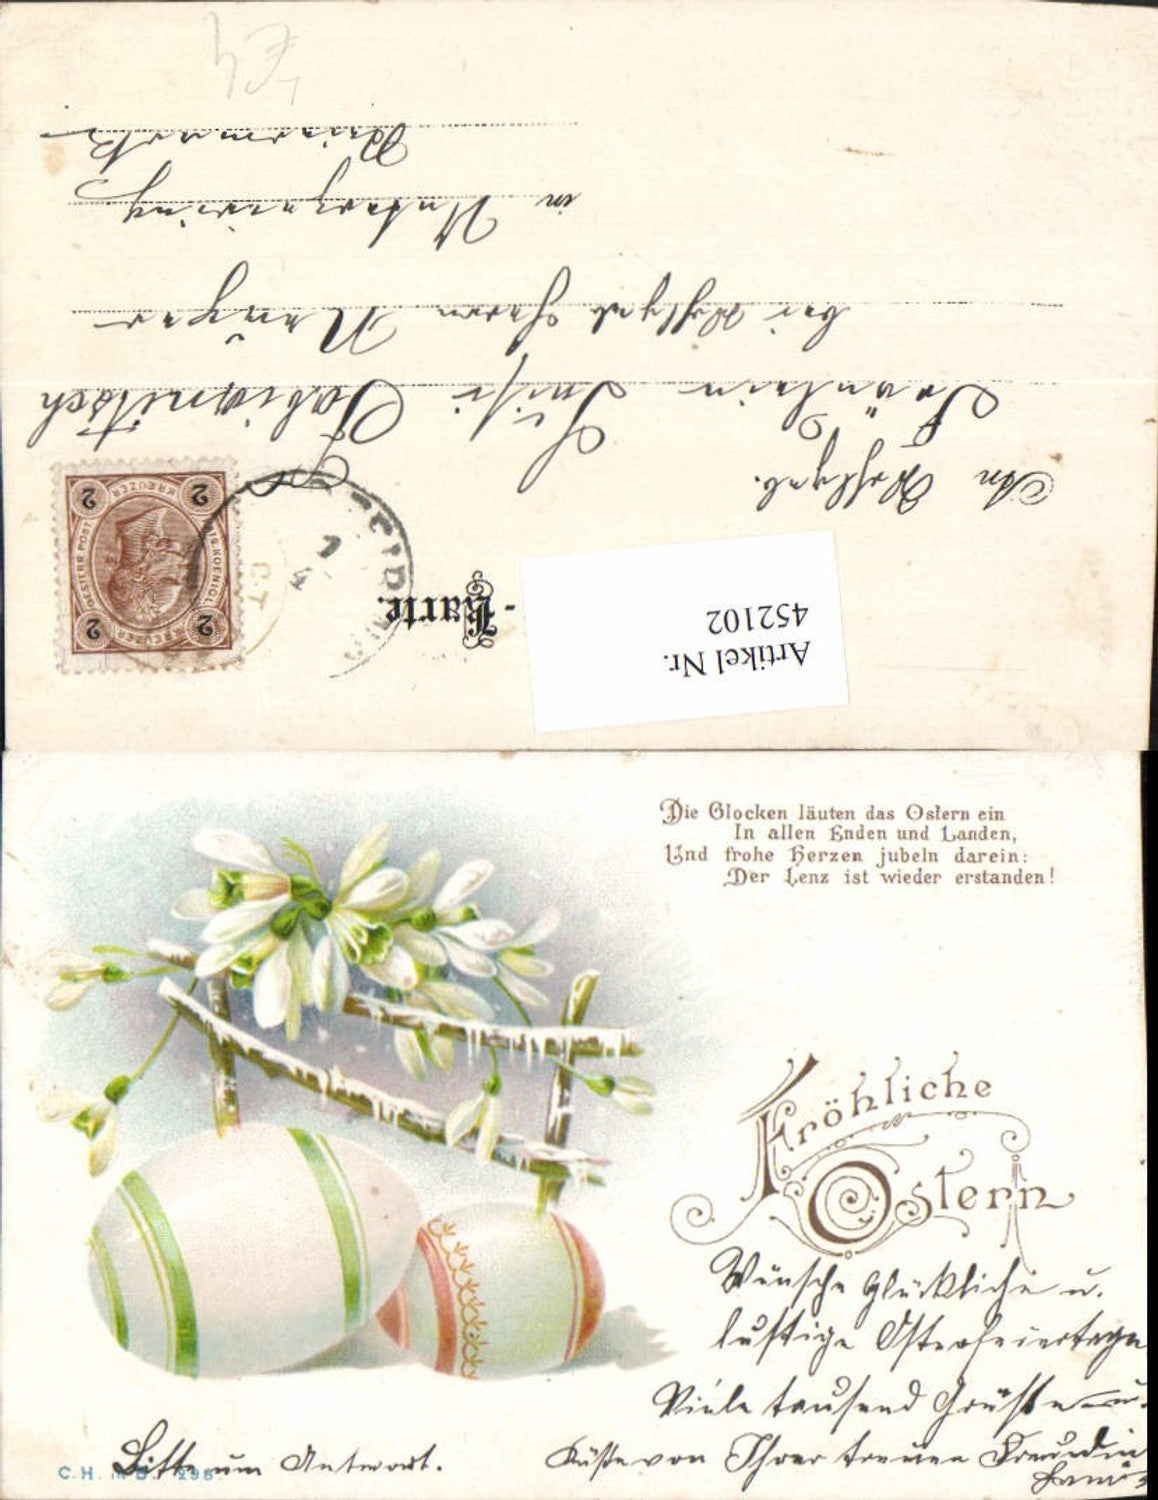 Artikel Nr.
452102
-Karte.
An Wohlgeb.
Fräulein Luisi
bei Wohlgeb Herrn
in
2 KREUZER 2
OESTERR. POST
IS. KOENIGL
2 KREUZER 2
Die Glocken läuten das Ostern ein
In allen Enden und Landen,
Und frohe Herzen jubeln darein:
Der Lenz ist wieder erstanden!
Fröhliche
Ostern
Wünsche glückliche u.
lustige Osterfeiertage
Viele tausend Grüße u.
Küße von Ihrer treuen Freundin
Bitte um Antwort.
C.H.